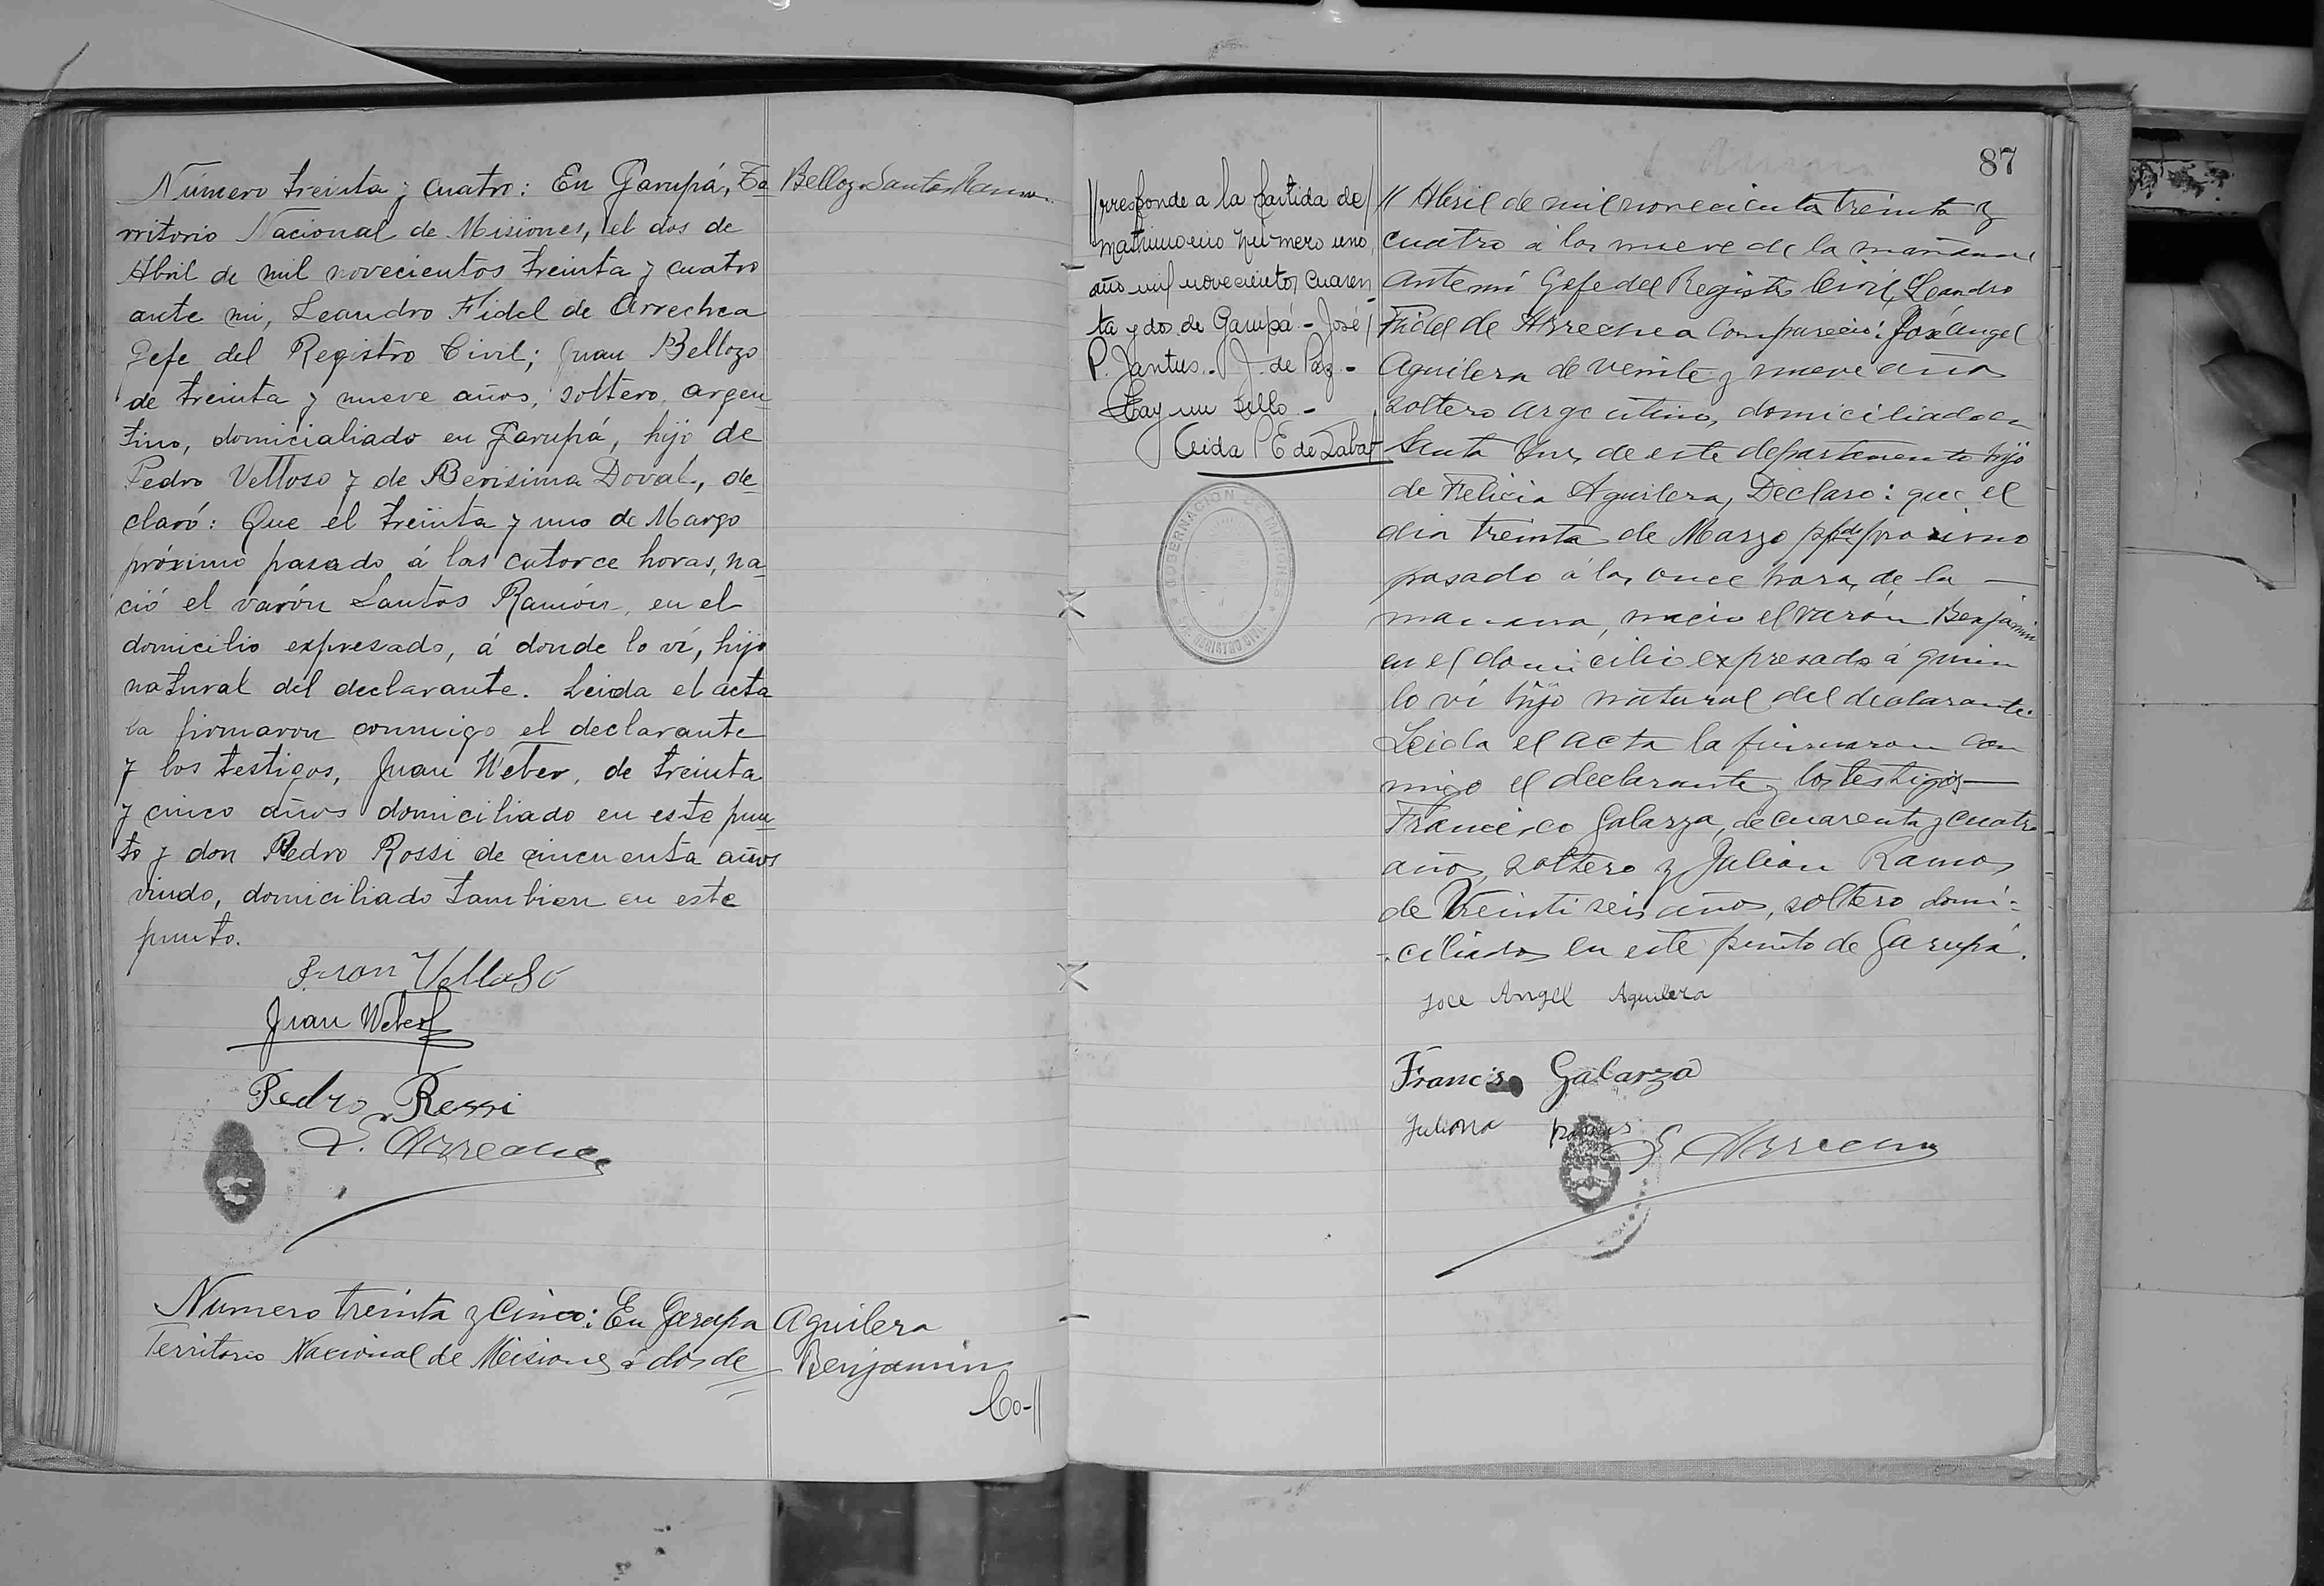 Número treinta y cuatro: En Garupá, Te
rritorio Nacional de Misiones, el dos de
Abril de mil novecientos treinta y cuatro
ante mi, Leandro Fidel de Arrechea
Gefe del Registro Civil; Juan Bellozo
de treinta y nueve años, soltero, argen
tino, domicialiado en Garupá, hijo de
Pedro Velloso y de Berisima Doval, de
claró: Que el treinta y uno de Marzo
próximo pasado á las catorce horas, na
ció el varón Santos Ramón, en el
domicilio expresado, á donde lo ví, hijo
natural del declarante. Leida el acta
la firmaron conmigo el declarante
y los testigos, Juan Weber, de treinta
y cinco años domiciliado en este pun
to y don Pedro Rossi de cincuenta años
viudo, domiciliado tambien en este
punto.
Juan Velloso
Juan Weber
Pedro Rossi
Bellozo Santos Ramon
Numero treinta y Cinco: En Garupa
Territorio Nacional de Misiones á dos de
Aguilera
Benjamin
Co-//
87
//rresponde a la partida de
matrimonio número uno,
año mil novecientos cuaren
ta y dos de Garupá - José
P. Jantus. - J. de Paz -
Hay un sello -
GOBERNACION DE MISIONES
REGISTRO CIVIL
// Abril de mil novecientos treinta y
cuatro á las nueve de la mañana
ante mi Gefe del Registro Civil, Leandro
Fidel de Arrechea Compareció: José Angel
Aguilera de veinte y nueve años
soltero argentino, domiciliado en
Santa Ines de este departamento hijo
de Felicia Aguilera, Declaro: que el
dia treinta de Marzo proximo
pasado á las once horas de la
manana, nacio el varón Benjamin
en el domicilio expresado á quien
lo vi hijo natural del declarante
Leida el acta la firmaron con
migo el declarante y los testigos
Francisco Galarza, de cuarenta y cuatro
años, soltero y Julian Ramos
de Veinti seis años, soltero domi-
-ciliados en este punto de Garupá.
Jose Angel Aguilera
Francis Galarza